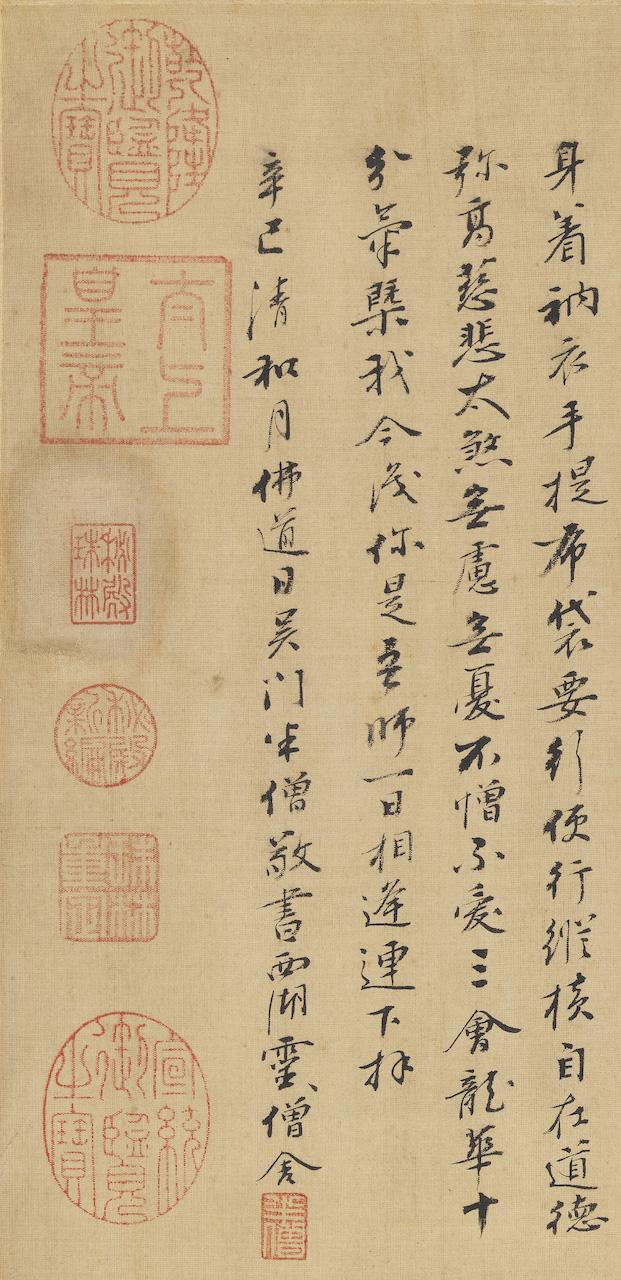 身着衲衣手提布袋要行便行縱橫自在道德
弥高慈悲太煞無慮無憂不憎不愛三會龍華十
分氣槩我今你是吾師一日相逢連下拜
辛巳清和月佛道日吳門半僧敬書西湖靈僧舍
半僧
乾隆御覽之寶
太上皇帝
秘殿珠林
秘殿新編
珠林重定
宣統御覽之寶